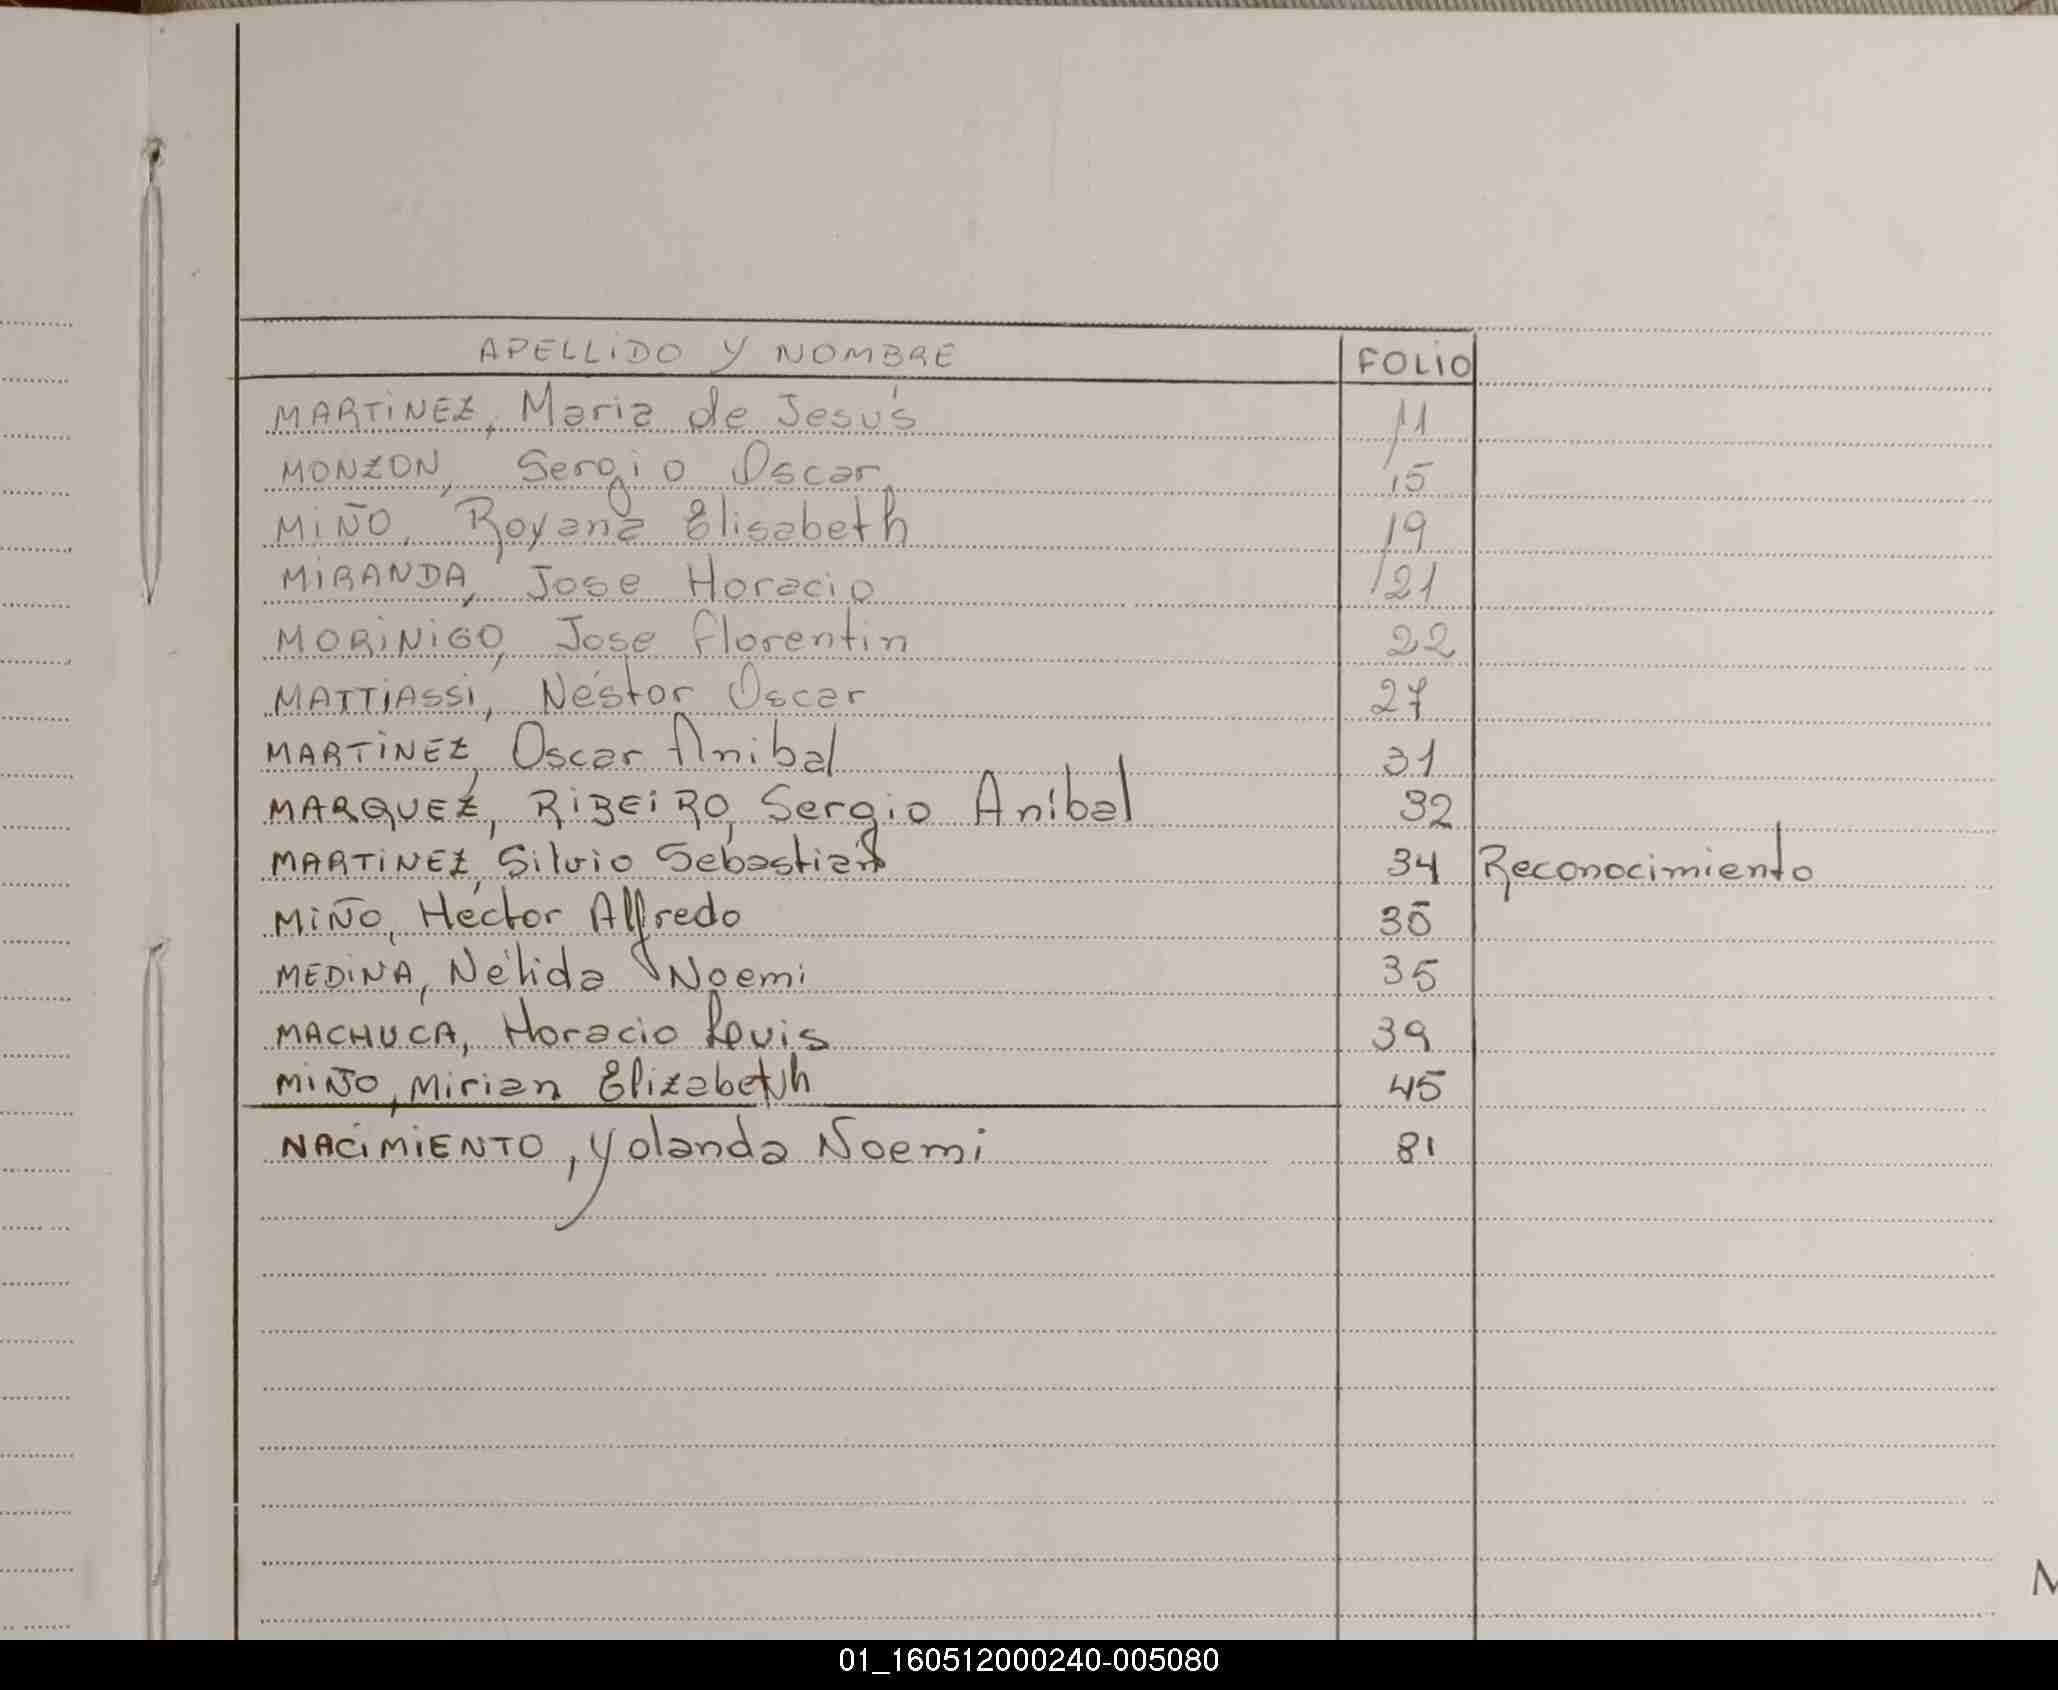 APELLIDO Y NOMBRE FOLIO
MARTINEZ, Maria de Jesús 11
MONZON, Sergio Oscar 15
MIÑO, Royana Elisabeth 19
MIRANDA, Jose Horacio 21
MORINIGO, Jose Florentin 22
MATTIASSI, Néstor Oscar 27
MARTINEZ, Oscar Anibal 31
MARQUEZ, RIBEIRO, Sergio Aníbal 32
MARTINEZ, Silvio Sebastián 34 Reconocimiento
MIÑO, Hector Alfredo 35
MEDINA, Nélida Noemi 35
MACHUCA, Horacio Luis 39
MIÑO, Mirian Elizabeth 45
NACIMIENTO, Yolanda Noemi 81
M
01_160512000240-005080